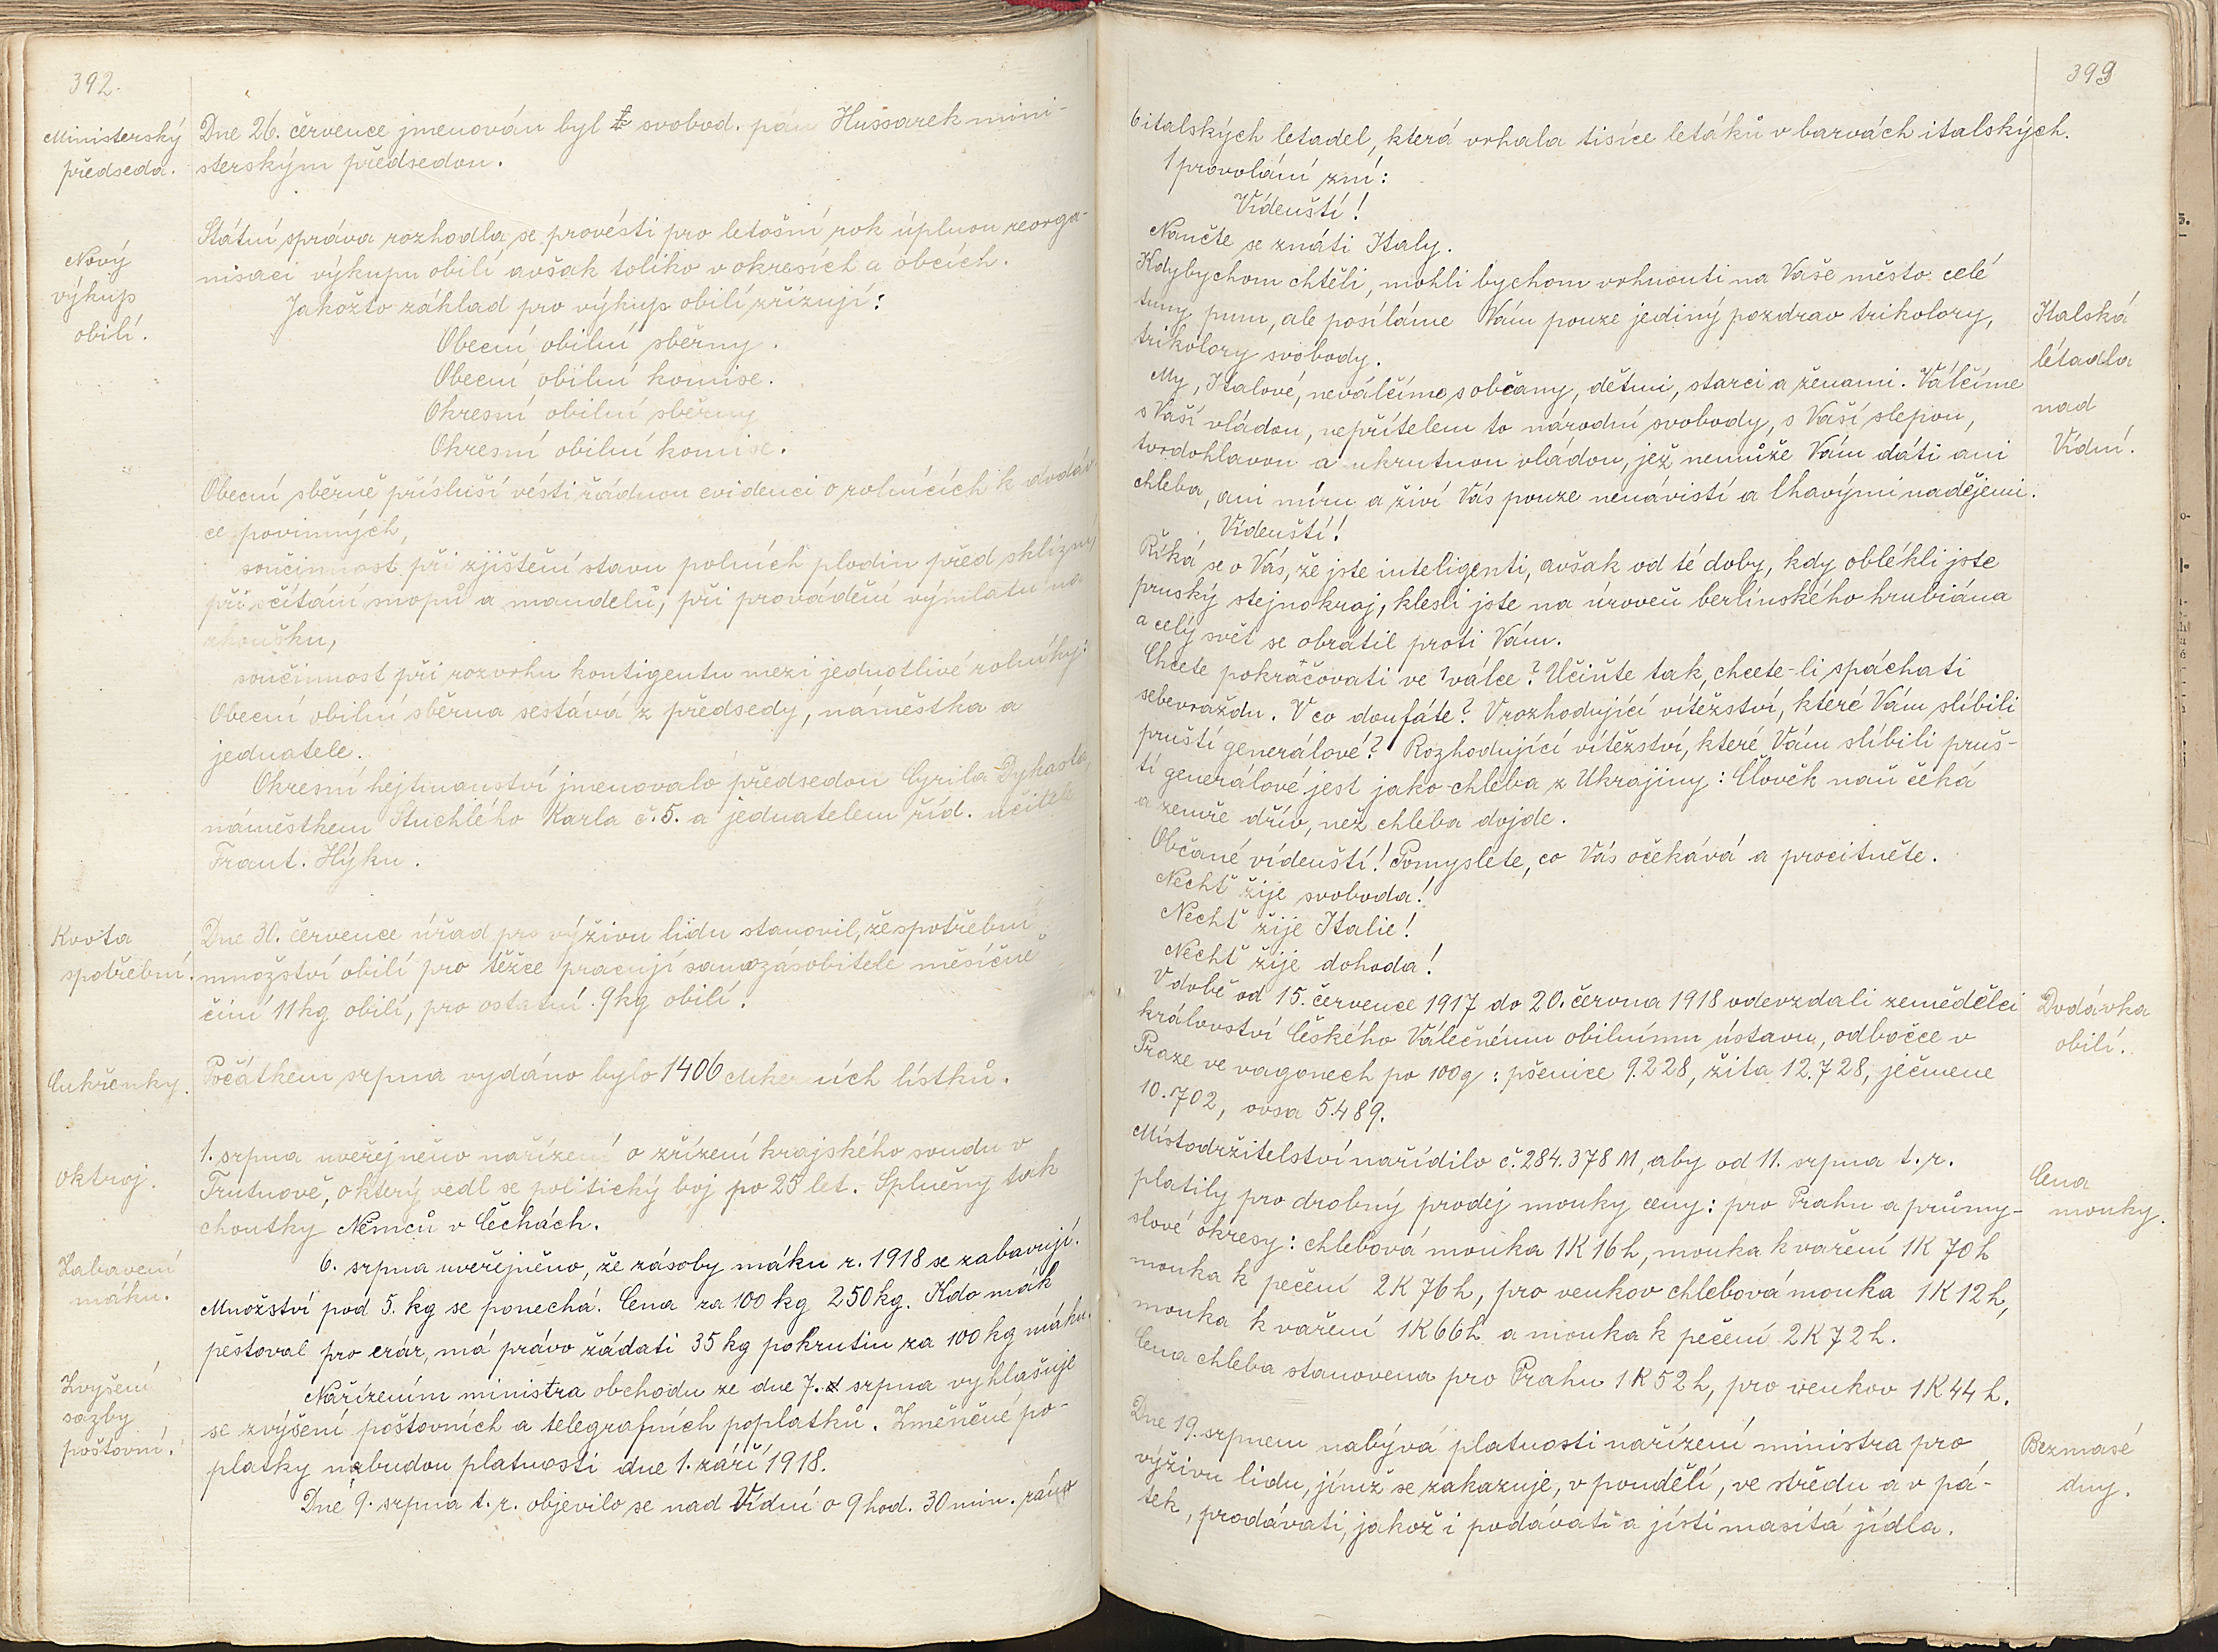 392.
Ministerský
předseda.
Dne 26. července jmenován byl svobod. pán Hussarek mini-
sterským předsedou.
Nový
výkup
obilí.
Státní správa rozhodla se provésti pro letošní rok úplnou reorga-
nisaci výkupu obilí avšak toliko v okresích a obcích.
Jakožto základ pro výkup obilí zřizují:
Obecní obilní sběrny.
Obecní obilní komise.
Okresní obilní sběrny
Okresní obilní komise.
Obecní sběrně přísluší vésti řádnou evidenci o rolnících k dodáv-
ce povinných,
součinnost při zjištění stavu polních plodin před sklizní,
při sčítání snopů a mandelů, při provádění výmlatu na
zkoušku,
součinnost při rozvrhu kontigentu mezi jednotlivé rolníky:
Obecní obilní sběrna sestává z předsedy, náměstka a
jednatele.
Okresní hejtmanství jmenovalo předsedou Cyrila Dykasta,
náměstkem Stuchlého Karla č. 5. a jednatelem říd. učitele
Frant. Hýku.
Kvota
spotřební.
Dne 30. července úřad pro výživu lidu stanovil, že spotřební
množství obilí pro těžce pracují samozásobitele měsíčně
činí 11 kg obilí, pro ostatní 9 kg obilí.
Cukřenky.
Počátkem srpna vydáno bylo 1406 cukerních lístků.
Oktroj.
1. srpna uveřejněno nařízení o zřízení krajského soudu v
Trutnově, o který vedl se politický boj po 25 let. Splněny tak
choutky Němců v Čechách.
Zabavení
máku.
6. srpna uveřejněno, že zásoby máku r. 1918 se zabavují.
Množství pod 5. kg se ponechá. Cena za 100 kg 250 kg. Kdo mák
pěstoval pro erár, má právo žádati 35 kg pokrutin za 100 kg máku.
Zvýšení
sazby
poštovní.
Nařízením ministra obchodu ze dne 7. srpna vyhlašuje
se zvýšení poštovních a telegrafních poplatků. Změněné po-
platky nabudou platnosti dne 1. září 1918.
Dne 9. srpna t. r. objevilo se nad Vídní o 9 hod. 30 min. ráno
393
6 italských letadel, která vrhala tisíce letáků v barvách italských.
1 provolání zní:
Vídenští!
Naučte se znáti Italy.
Kdybychom chtěli, mohli bychom vrhnouti na Vaše město celé
tuny pum, ale posíláme Vám pouze jediný pozdrav trikolory,
trikolory svobody.
Italská
létadla
nad
Vídní.
My, Italové, neválčíme s občany, dětmi, starci a ženami. Válčíme
s Vaší vládou, nepřítelem to národní svobody, s Vaší slepou,
tvrdohlavou a ukrutnou vládou, jež nemůže Vám dáti ani
chleba, ani míru a živí Vás pouze nenávistí a lhavými nadějemi.
Vídenští!
Říká se o Vás, že jste inteligenti, avšak od té doby, kdy oblékli jste
pruský stejnokroj, klesli jste na úroveň berlínského hrubiána
a celý svět se obrátil proti Vám.
Chcete pokračovati ve válce? Učiňte tak, chcete-li spáchati
sebevraždu. V co doufáte? V rozhodující vítězství, které Vám slíbili
pruští generálové? Rozhodující vítězství, které Vám slíbili pruš-
tí generálové jest jako chleba z Ukrajiny: Člověk naň čeká
a zemře dřív, než chleba dojde.
Občané vídenští! Pomyslete, co Vás očekává a procitněte.
Nechť žije svoboda!
Nechť žije Italie!
Nechť žije dohoda!
V době od 15. července 1917 do 20. června 1918 odevzdali zemědělci
království Českého Válečnému obilnímu ústavu, odbočce v
Praze ve vagonech po 100 q: pšenice 9.228, žita 12.728, ječmene
10.702, ovsa 5.489.
Dodávka
obilí.
Místodržitelství nařídilo č. 284.378 M, aby od 11. srpna t. r.
platily pro drobný prodej mouky ceny: pro Prahu a průmy-
slové okresy: chlebová mouka 1K 16 h, mouka k vaření 1K 70 h
mouka k pečení 2 K 76 h, pro venkov chlebová mouka 1K 12 h,
mouka k vaření 1K 66 h a mouka k pečení 2 K 72 h.
Cena chleba stanovena pro Prahu 1 K 52 h, pro venkov 1 K 44 h.
Cena
mouky.
Dne 19. srpnem nabývá platnosti nařízení ministra pro
výživu lidu, jímž se zakazuje, v pondělí, ve středu a v pá-
tek, prodávati, jakož i podávati a jísti masitá jídla.
Bezmasé
dny.